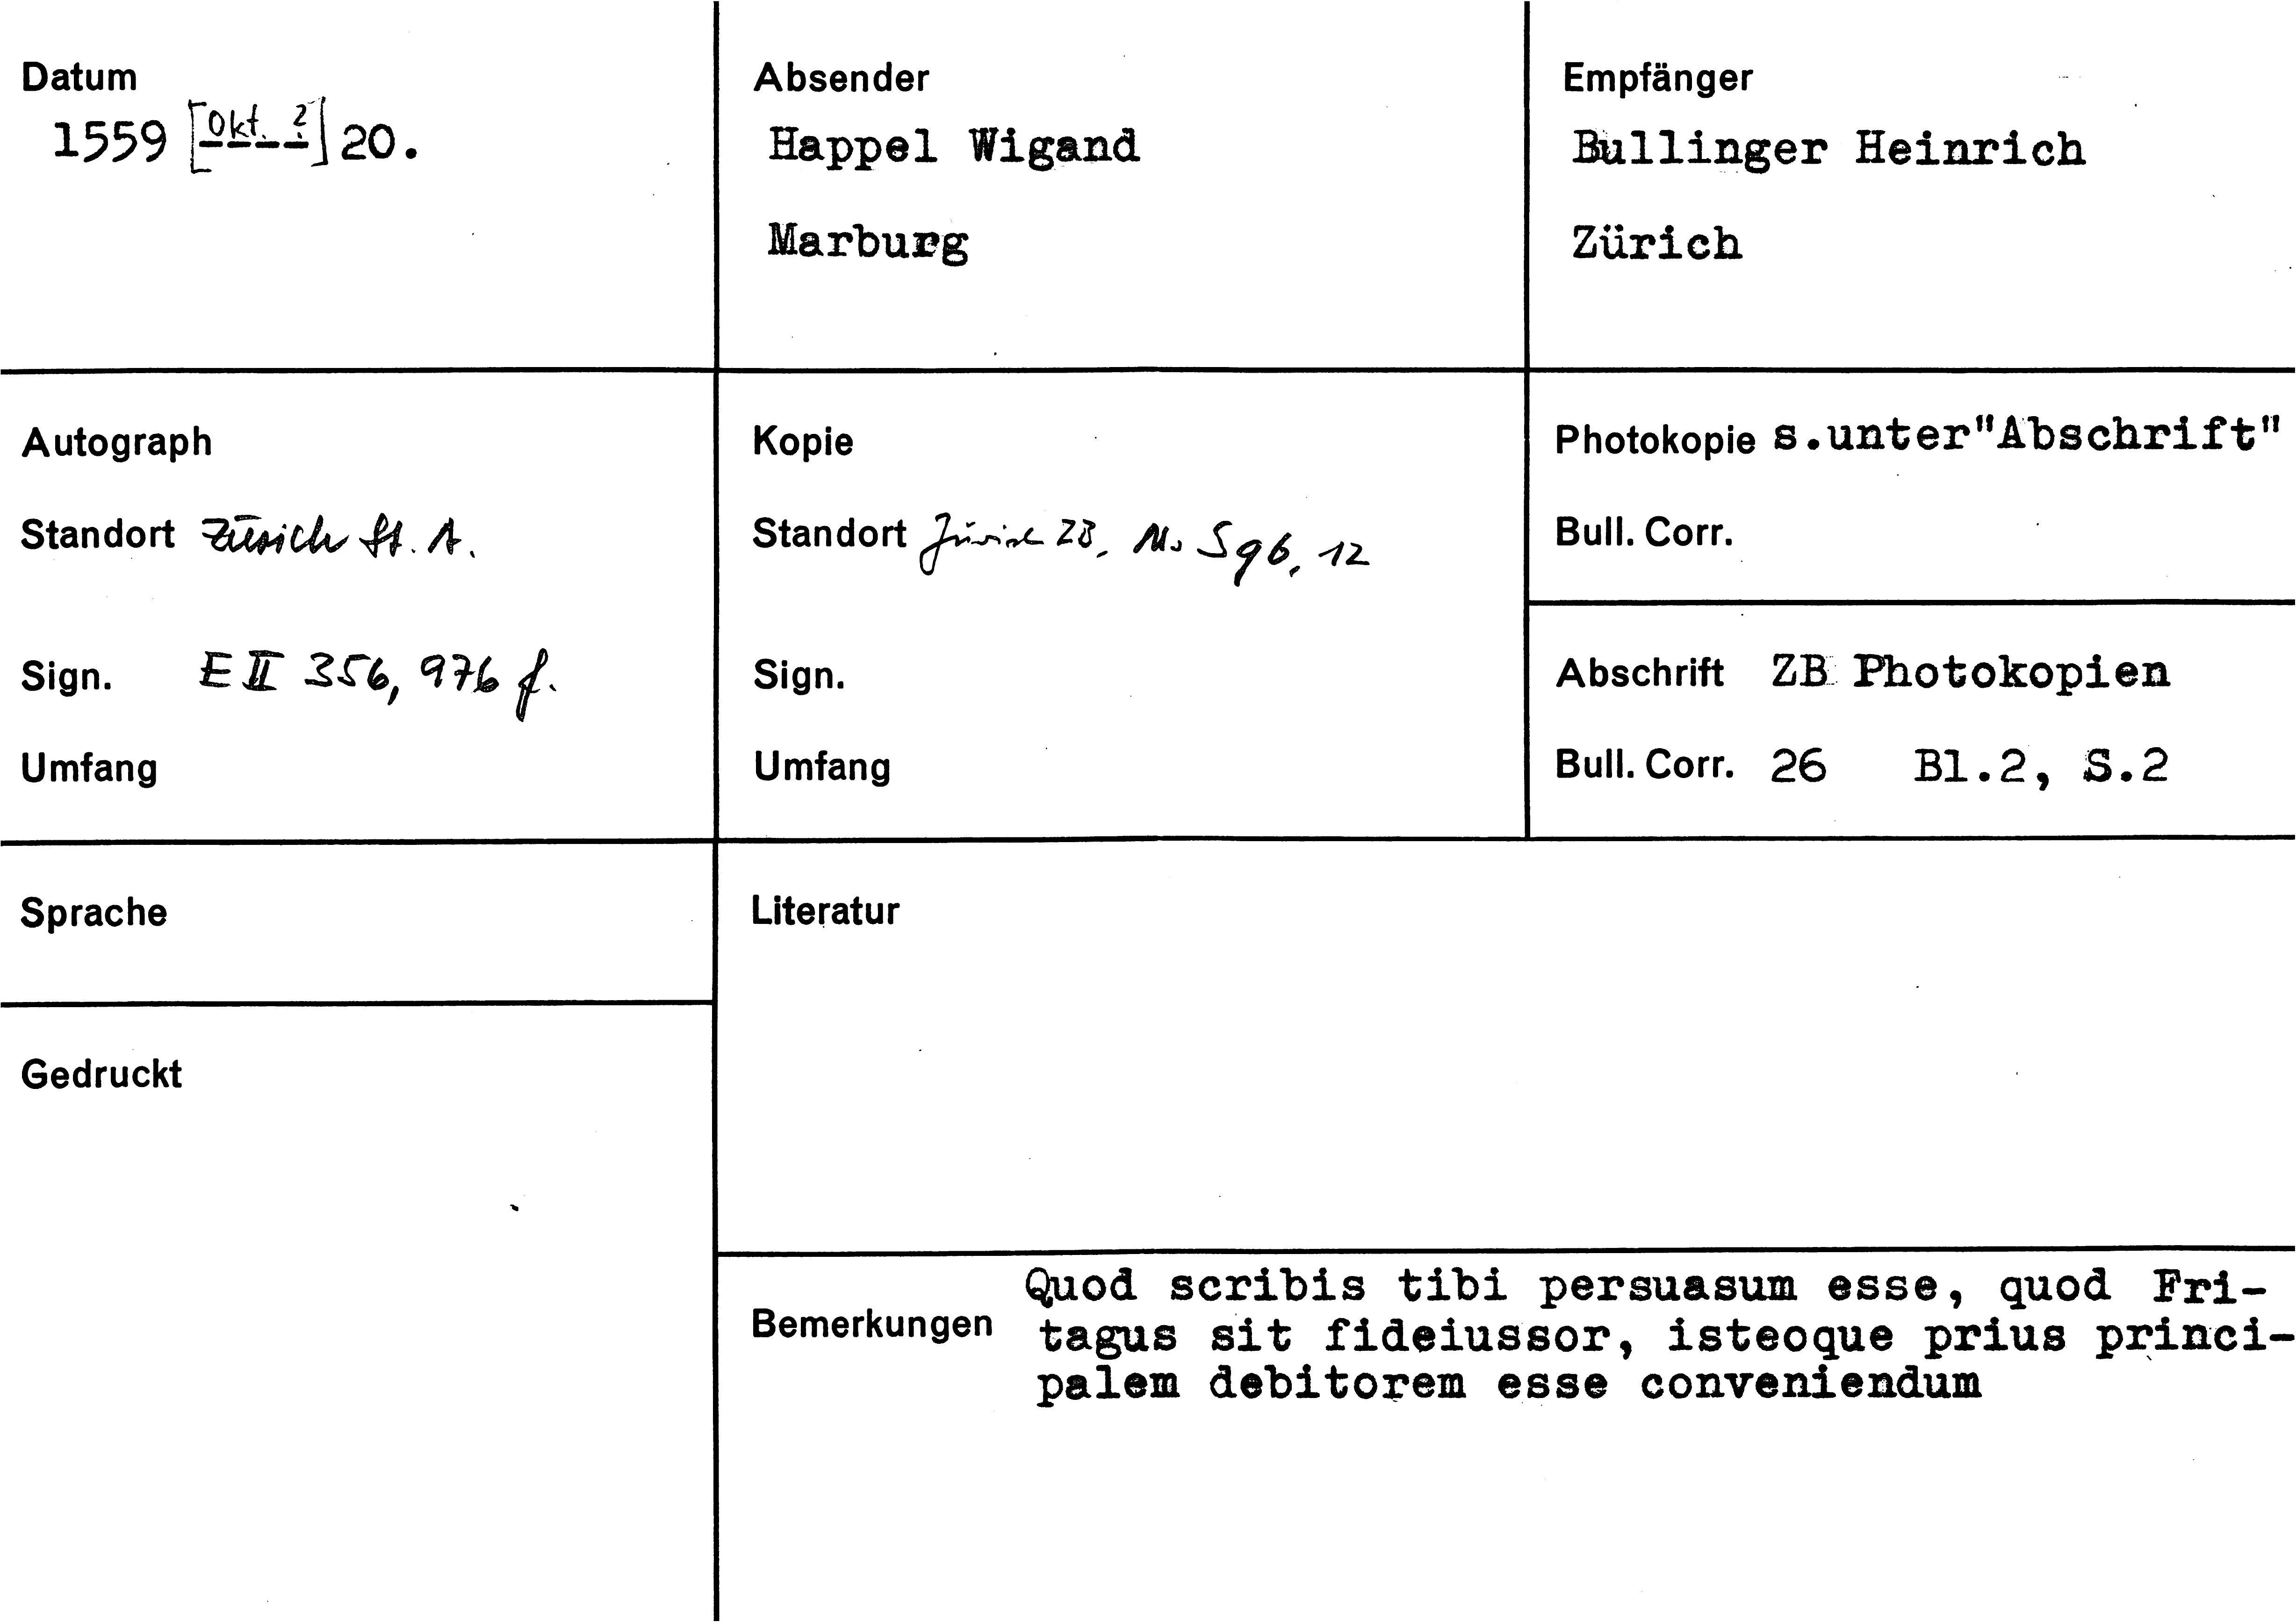 Datum
1559 [Okt. ?] 20.
Absender
Happel Wigand
Marburg
Empfänger
Bullinger Heinrich
Zürich
Autograph
Standort Zürich St. A.
Sign. E II 356, 976 f.
Umfang
Kopie
Standort Zürich ZB, Ms S 96, 12
Sign.
Umfang
Photokopie s.unter"Abschrift"
Bull. Corr.
Abschrift ZB Photokopien
Bull. Corr. 26 Bl.2, S.2
Sprache
Gedruckt
Literatur
Bemerkungen
Quod scribis tibi persuasum esse, quod Fri-
tagus sit fideiussor, isteoque prius princi-
palem debitorem esse conveniendum